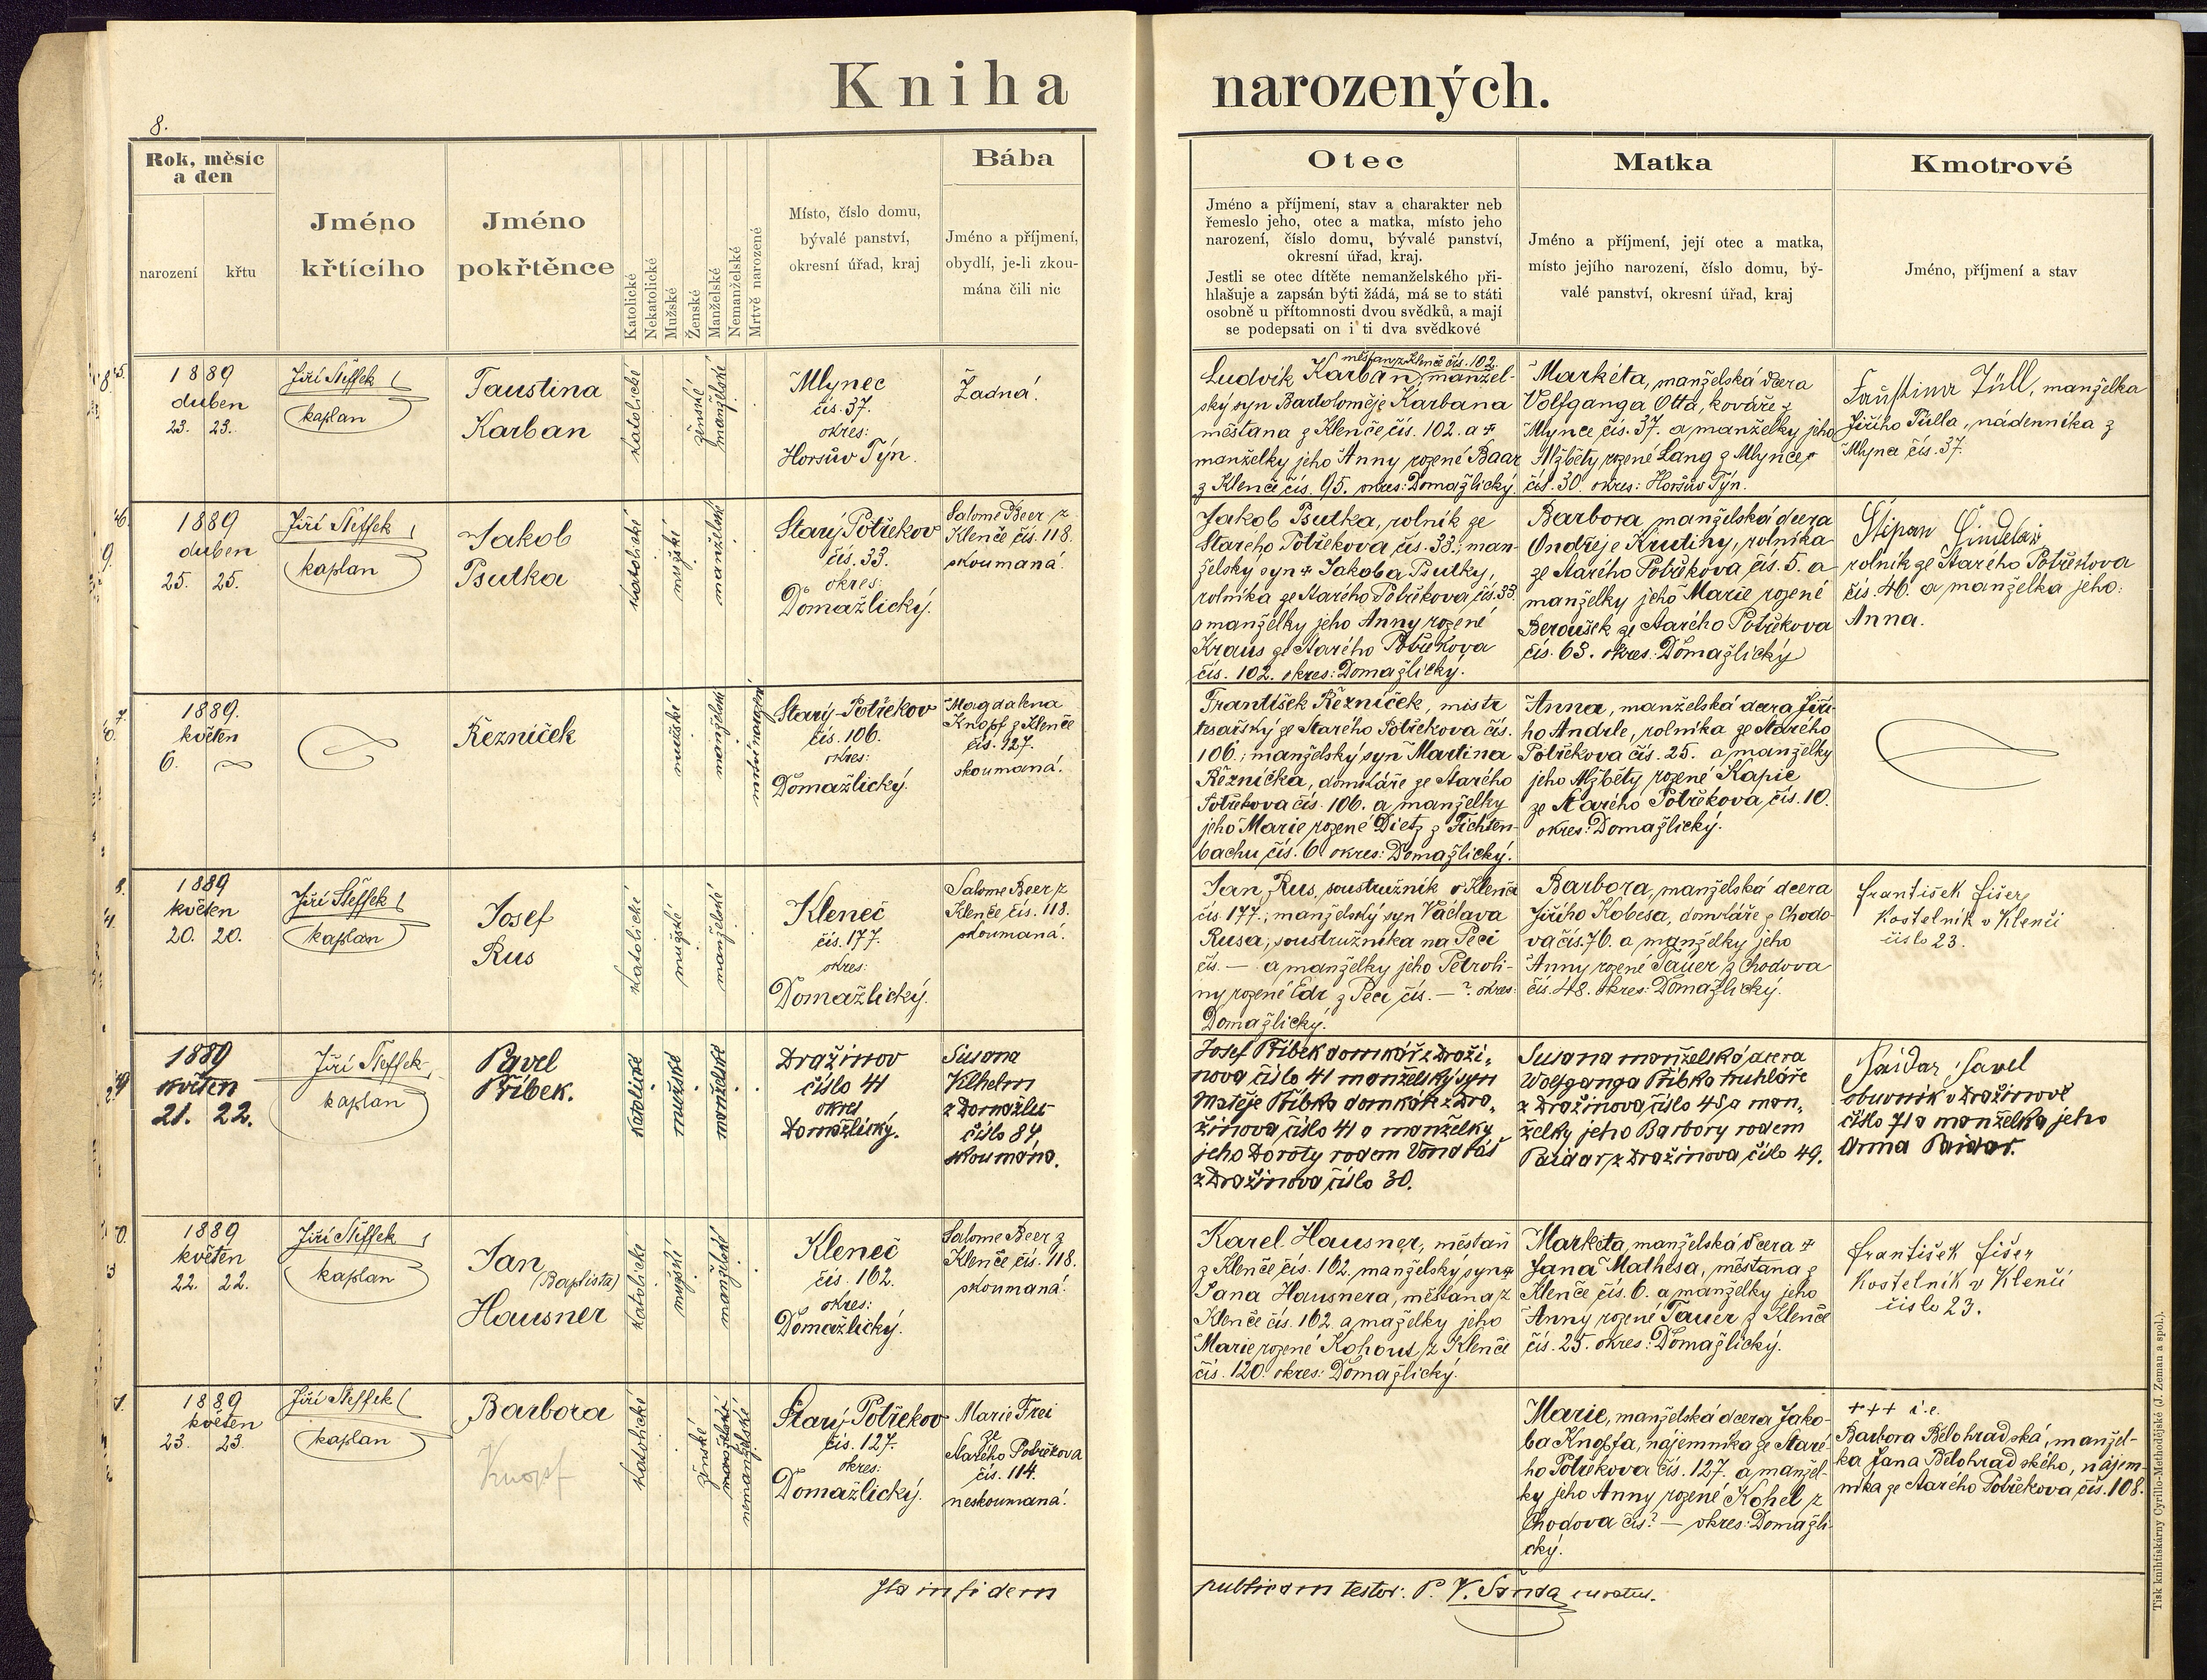 Kniha narozených.
8.
Rok, měsíc
a den
narození
křtu
Jméno
křtícího
Jméno
pokřtěnce
Katolické
Nekatolické
Mužské
Ženské
Manželské
Nemanželské
Mrtvě narozené
Místo, číslo domu,
bývalé panství,
okresní úřad, kraj
Bába
Jméno a příjmení,
obydlí, je-li zkou-
mána čili nic
Otec
Jméno a příjmení, stav a charakter neb
řemeslo jeho, otec a matka, místo jeho
narození, číslo domu, bývalé panství,
okresní úřad, kraj.
Jestli se otec dítěte nemanželského při-
hlašuje a zapsán býti žádá, má se to státi
osobně u přítomnosti dvou svědků, a mají
se podepsati on i ti dva svědkové
Matka
Jméno a příjmení, její otec a matka,
místo jejího narození, číslo domu, bý-
valé panství, okresní úřad, kraj
Kmotrové
Jméno, příjmení a stav
1889
duben
23. 23.
Jiří Steffek
kaplan
Faustina
Karban
katolické
ženské
manželské
Mlynec
čís. 37.
okres:
Horšův Týn.
Žádná.
měšťan z Klenče čís. 102.
Ludvík Karban, manžel-
ský syn Bartoloměje Karbana
měšťana z Klenče, čís. 102. a +
manželky jeho Anny rozené Baar
z Klenče čís. 95. okres: Domažlický.
Markéta, manželská dcera
Volfganga Otta, kováře z
Mlynce čís. 37. a manželky jeho
Alžběty rozené Lang z Mlynce
čís. 30. okres: Horšův Týn.
Faustina Züll, manželka
Jiřího Tülla, nádenníka z
Mlynce čís. 37.
1889
duben
25. 25.
Jiří Steffek
kaplan
Jakob
Psutka
katolické
mužské
manželské
Starý Postřekov
čís. 33.
okres:
Domažlický.
Salome Beer z
Klenče čís. 118.
skoumaná.
Jakob Psutka, rolník ze
Starého Postřekova čís. 33.; man-
želský syn + Jakoba Psutky,
rolníka ze Starého Postřekova, čís. 33.
a manželky jeho Anny rozené
Kraus ze Starého Postřekova
čís. 102. okres: Domažlický.
Barbora, manželská dcera
Ondřeje Krutiny, rolníka
ze Starého Postřekova čís. 5. a
manželky jeho Marie rozené
Beroušek ze Starého Postřekova
čís. 63. okres: Domažlický
rolník ze Starého Postřekova
čís. 46. a manželka jeho:
Anna.
1889.
květen
6.
Řezníček
mužské
manželské
mrtvě narozené
Starý-Postřekov
čís. 106.
okres:
Domažlický.
Magdalena
Knopf z Klenče
čís. 127.
skoumaná.
František Řezníček, mistr
tesařský ze Starého Postřekova čís.
106.; manželský syn Martina
Řezníčka, domkáře ze Starého
Postřekova čís. 106. a manželky
jeho Marie rozené Dietz z Fichten-
bachu čís. 6. okres: Domažlický.
Anna, manželská dcera Jiří-
ho Andrle, rolníka ze Starého
Postřekova čís. 25. a manželky
jeho Alžběty rozené Kapic
ze Starého Postřekova, čís. 10.
okres: Domažlický.
1889
květen
20. 20.
Jiří Steffek
kaplan
Josef
Rus
katolické
mužské
manželské
Kleneč
čís. 177.
okres:
Domažlický.
Salome Beer z
Klenče, čís. 118.
skoumaná.
Jan Rus, soustružník v Klenči
čís. 177.; manželský syn Václava
Rusa, soustružníka na Peci
čís. — a manželky jeho Petroli-
ny rozené Edr z Peci čís. — ? okres:
Domažlický.
Barbora, manželská dcera
Jiřího Kobesa, domkáře z Chodo-
va čís. 76. a manželky jeho
Anny rozené Tauer z Chodova
čís. 48. okres: Domažlický.
František Fišer
Kostelník v Klenči
číslo 23.
1889
květen
21. 22.
Jiří Steffek
kaplan
Pavel
Příbek.
katolické
mužské
manželské
Dražinov
číslo 41
okres
Domažlický.
Susana
Vilhelm
z Domažlic
číslo 84
skoumána.
Josef Příbek domkář z Draži-
nova číslo 41 manželský syn
Matěje Příbka domkáře z Dra-
žinova číslo 41 a manželky
jeho Doroty rodem Vondráš
z Dražinova číslo 30.
Susana manželská dcera
Wolfganga Příbka truhláře
z Dražinova číslo 45 a man-
želky jeho Barbory rodem
Paidar z Dražinova číslo 49.
Paidar Pavel
obuvník v Dražinově
číslo 71 a manželka jeho
Anna Paidar.
1889
květen
22. 22.
Jiří Steffek
kaplan
Jan
(Baptista)
Hausner
katolické
mužské
manželské
Kleneč
čís. 162.
okres:
Domažlický.
Salome Beer z
Klenče čís. 118.
skoumaná.
Karel Hausner, měšťan
z Klenče čís. 162. manželský syn +
Jana Hausnera, měšťana z
Klenče čís. 162. a maželky jeho
Marie rozené Kohout z Klenče
čís. 120. okres: Domažlický.
Markéta, manželská dcera +
Jana Mathesa, měšťana z
Klenče čís. 6. a manželky jeho
Anny rozené Tauer z Klenče
čís. 25. okres: Domažlický.
František Fišer
Kostelník v Klenči
číslo 23.
1889
květen
23. 23.
Jiří Steffek
kaplan
Barbora
Knopf
katolické
ženské
manželské
nemanželské
Starý Postřekov
čís. 127.
okres:
Domažlický.
Marie Frei
ze
Starého Postřekova
čís. 114.
neskoumaná.
Marie, manželská dcera Jako-
ba Knopfa, nájemníka ze Staré-
ho Postřekova čís. 127. a manžel-
ky jeho Anny rozené Kohel z
Chodova čís.? — okres: Domažli-
cký.
+++ i. e.
Barbora Bělohradská, manžel-
ka Jana Bělohradského, nájem-
níka ze Starého Postřekova, čís. 108.
Ita in fidem publicam testor: P. V. Šanda curatus.
Tisk knihtiskárny Cyrillo-Methodějské (J. Zeman a spol.).